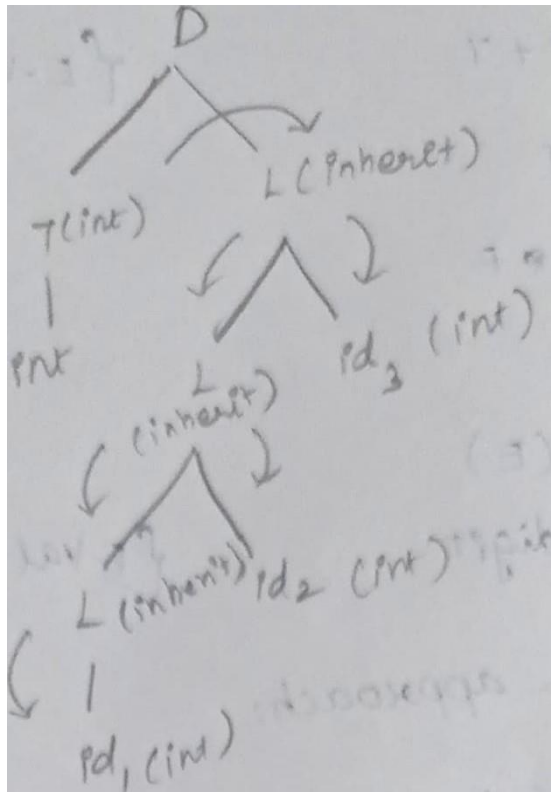 D
T(int) L(inherit)
int
L id₃ (int)
(inherit)
L (inherit) id₂ (int)
id₁ (int)